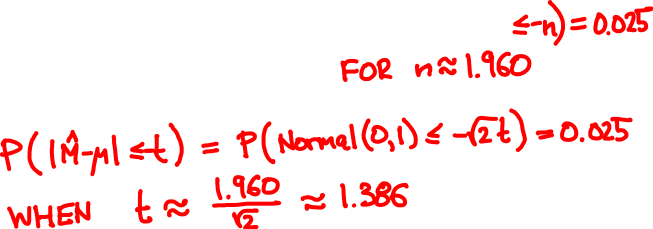 ≤-n) = 0.025
FOR n ≈ 1.960
P(|M̂-μ| ≤ t) = P(Normal(0,1) ≤ -√2t) = 0.025
WHEN t ≈ 1.960/√2 ≈ 1.386